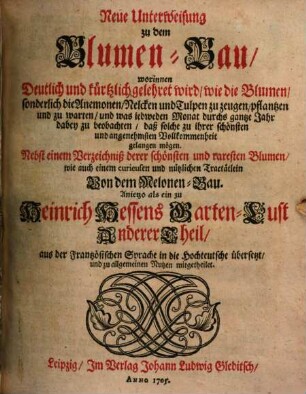 Neue Unterweisung
zu dem
Blumen-Bau/
worinnen
Deutlich und kürtzlich gelehret wird/ wie die Blumen/
sonderlich die Anemonen/ Nelcken und Tulpen zu zeugen/ pflantzen
und zu warten/ und was iedweden Monat durchs gantze Jahr
dabey zu beobachten/ daß solche zu ihrer schönsten
und angenehmsten Vollkommenheit
gelangen mögen.
Nebst einem Verzeichniß derer schönsten und raresten Blumen/
wie auch einem curieusen und nützlichen Tractätlein
Von dem Melonen-Bau.
Anietzo als ein zu
Heinrich Hessens Garten-Lust
Anderer Theil/
aus der Frantzösischen Sprache in die Hochteutsche übersetzt/
und zu allgemeinen Nutzen mitgetheilet.
Leipzig/ Im Verlag Johann Ludwig Gleditsch/
ANNO 1705.